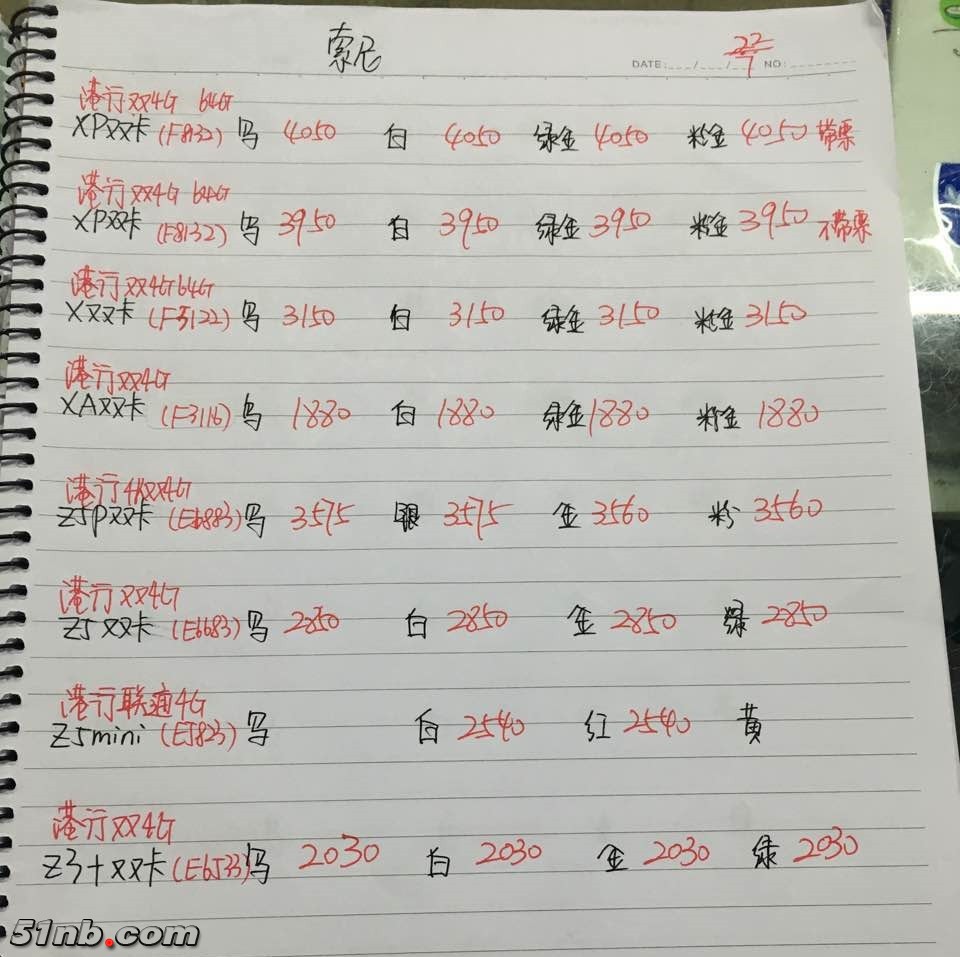 索尼
DATE:___/___/___ NO:
22/7
港行双4G 64G
XP双卡 (F8132) 黑 4050 白 4050 绿金 4050 粉金 4050 带票
港行双4G 64G
XP双卡 (F8132) 黑 3950 白 3950 绿金 3950 粉金 3950 不带票
港行双4G 64G
X双卡 (F5122) 黑 3150 白 3150 绿金 3150 粉金 3150
港行双4G
XA双卡 (F3116) 黑 1880 白 1880 绿金 1880 粉金 1880
港行4K双4G
Z5P双卡 (E6883) 黑 3575 银 3575 金 3560 粉 3560
港行双4G
Z5双卡 (E6683) 黑 2850 白 2850 金 2850 绿 2850
港行联通4G
Z5mini (E5823) 黑 白 2540 红 2540 黄
港行双4G
Z3+双卡 (E6533) 黑 2030 白 2030 金 2030 绿 2030
51nb.com